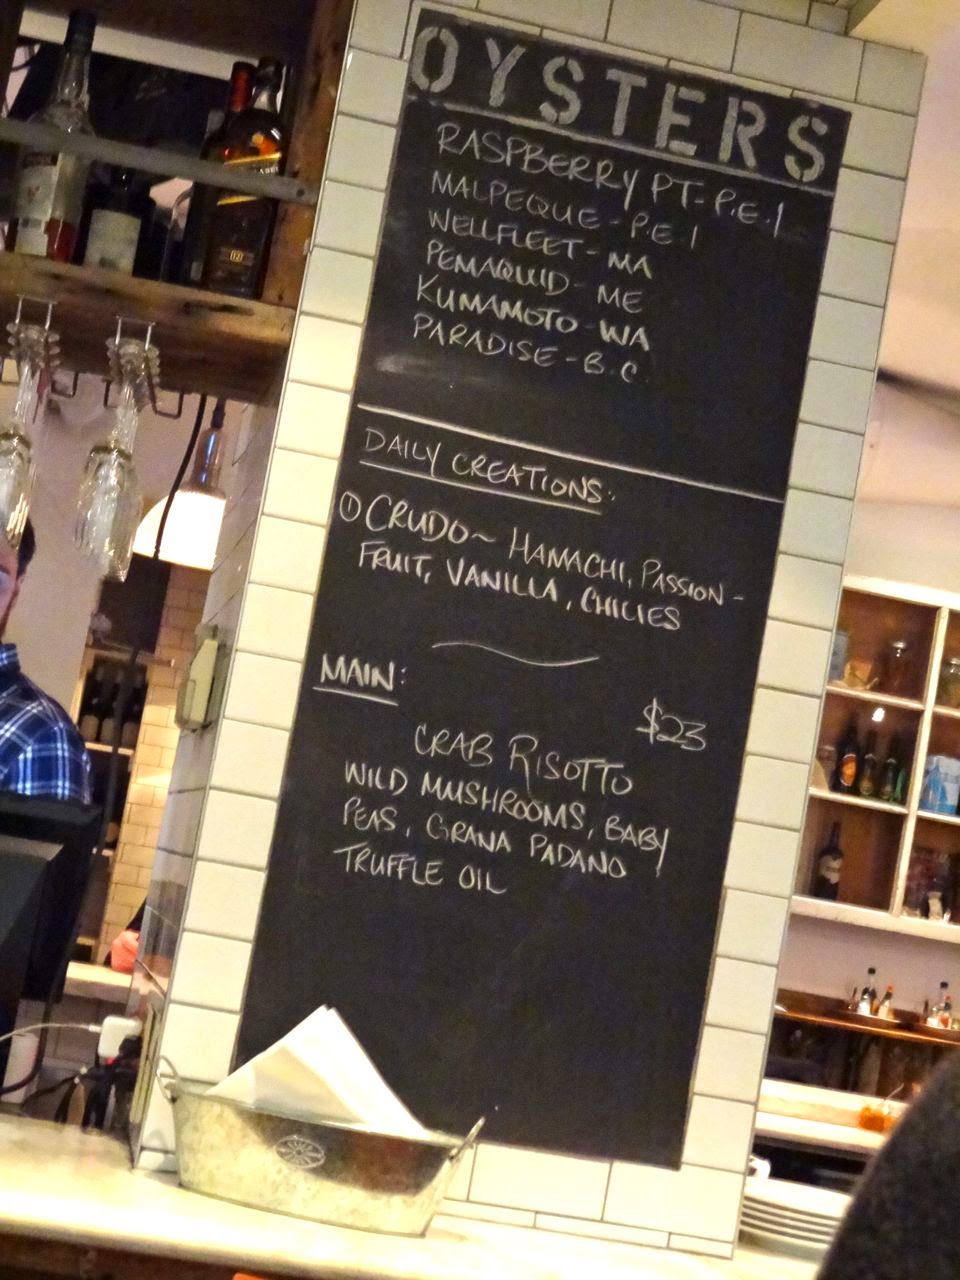 OYSTERS
RASPBERRY PT- P.E.I
MALPEQUE - P.E.I
WELLFLEET - MA
PEMAQUID - ME
KUMAMOTO - WA
PARADISE - B.C.
DAILY CREATIONS:
① CRUDO ~ HAMACHI, PASSION -
FRUIT, VANILLA, CHILIES
MAIN:
$23
CRAB RISOTTO
WILD MUSHROOMS, BABY
PEAS, GRANA PADANO
TRUFFLE OIL